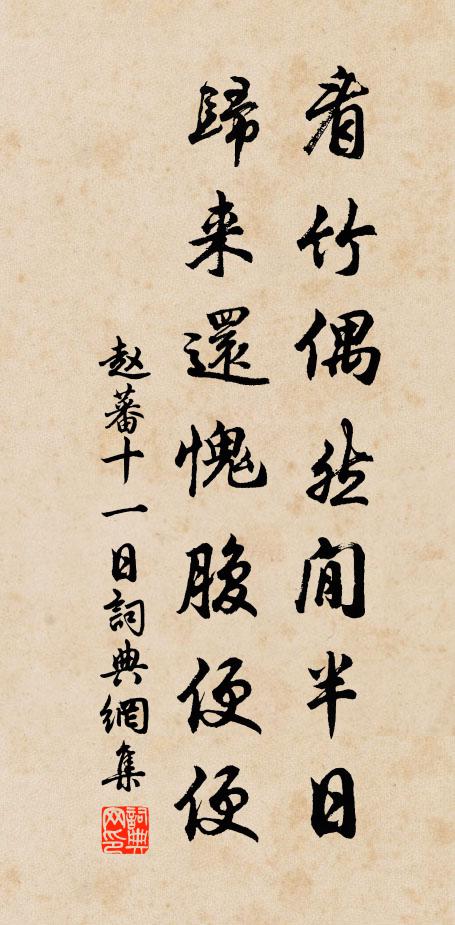 看竹偶然閒半日
歸来還愧腹便便
赵蕃十一日詞典網集
詞典网印